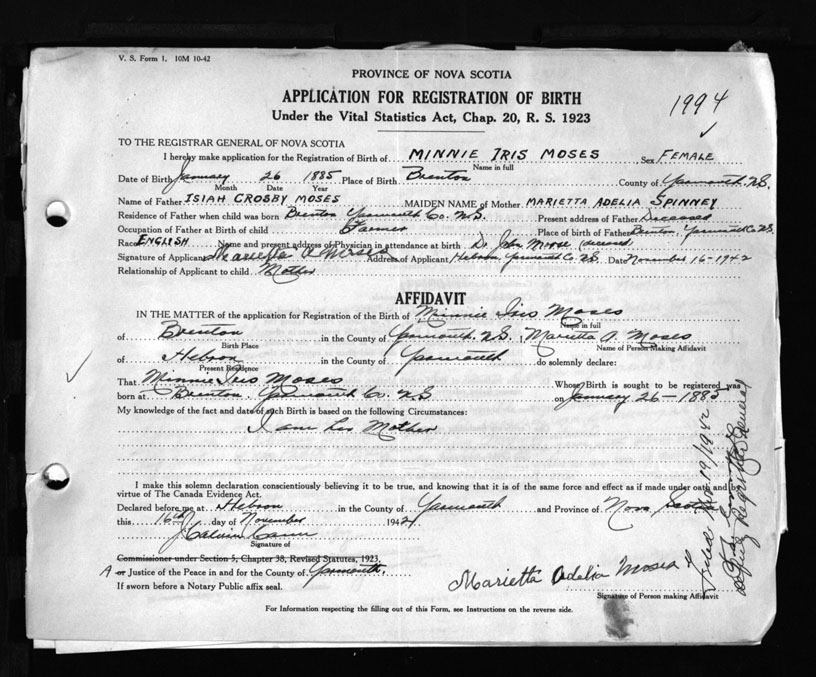 V. S. Form 1. 10M 10-42
PROVINCE OF NOVA SCOTIA
APPLICATION FOR REGISTRATION OF BIRTH
1994
Under the Vital Statistics Act, Chap. 20, R. S. 1923
TO THE REGISTRAR GENERAL OF NOVA SCOTIA
I hereby make application for the Registration of Birth of MINNIE IRIS MOSES Sex FEMALE
Name in full
Date of Birth January 26 1885 Place of Birth Brenton County of Yarmouth, N.S.
Month Date Year
Name of Father ISIAH CROSBY MOSES MAIDEN NAME of Mother MARIETTA ADELIA SPINNEY
Residence of Father when child was born Brenton Yarmouth Co. N.S. Present address of Father Deceased
Occupation of Father at Birth of child Farmer Place of birth of Father Brenton, Yarmouth Co N.S.
Race ENGLISH Name and present address of Physician in attendance at birth Dr. John Moore (deceased)
Signature of Applicant Marietta A Moses Address of Applicant Hebron, Yarmouth Co. N.S. Date November 16-1942
Relationship of Applicant to child Mother
AFFIDAVIT
IN THE MATTER of the application for Registration of the Birth of Minnie Iris Moses
Name in full
of Brenton in the County of Yarmouth, N.S. Marietta A. Moses
Birth Place Name of Person Making Affidavit
of Hebron in the County of Yarmouth do solemnly declare:
Present Residence
That Minnie Iris Moses Whose Birth is sought to be registered was
born at Brenton, Yarmouth Co. N.S. on January 26-1885
My knowledge of the fact and date of such Birth is based on the following Circumstances:
I am her Mother
I make this solemn declaration conscientiously believing it to be true, and knowing that it is of the same force and effect as if made under oath and by
virtue of The Canada Evidence Act.
Declared before me at Hebron in the County of Yarmouth and Province of Nova Scotia
this 16th day of November 1942
Calvin
Signature of
Commissioner under Section 5, Chapter 38, Revised Statutes, 1923.
A or Justice of the Peace in and for the County of Yarmouth.
If sworn before a Notary Public affix seal.
Marietta Adelia Moses
Signature of Person making Affidavit
For Information respecting the filling out of this Form, see Instructions on the reverse side.
Filed Nov. 19/1942
Deputy Registrar General